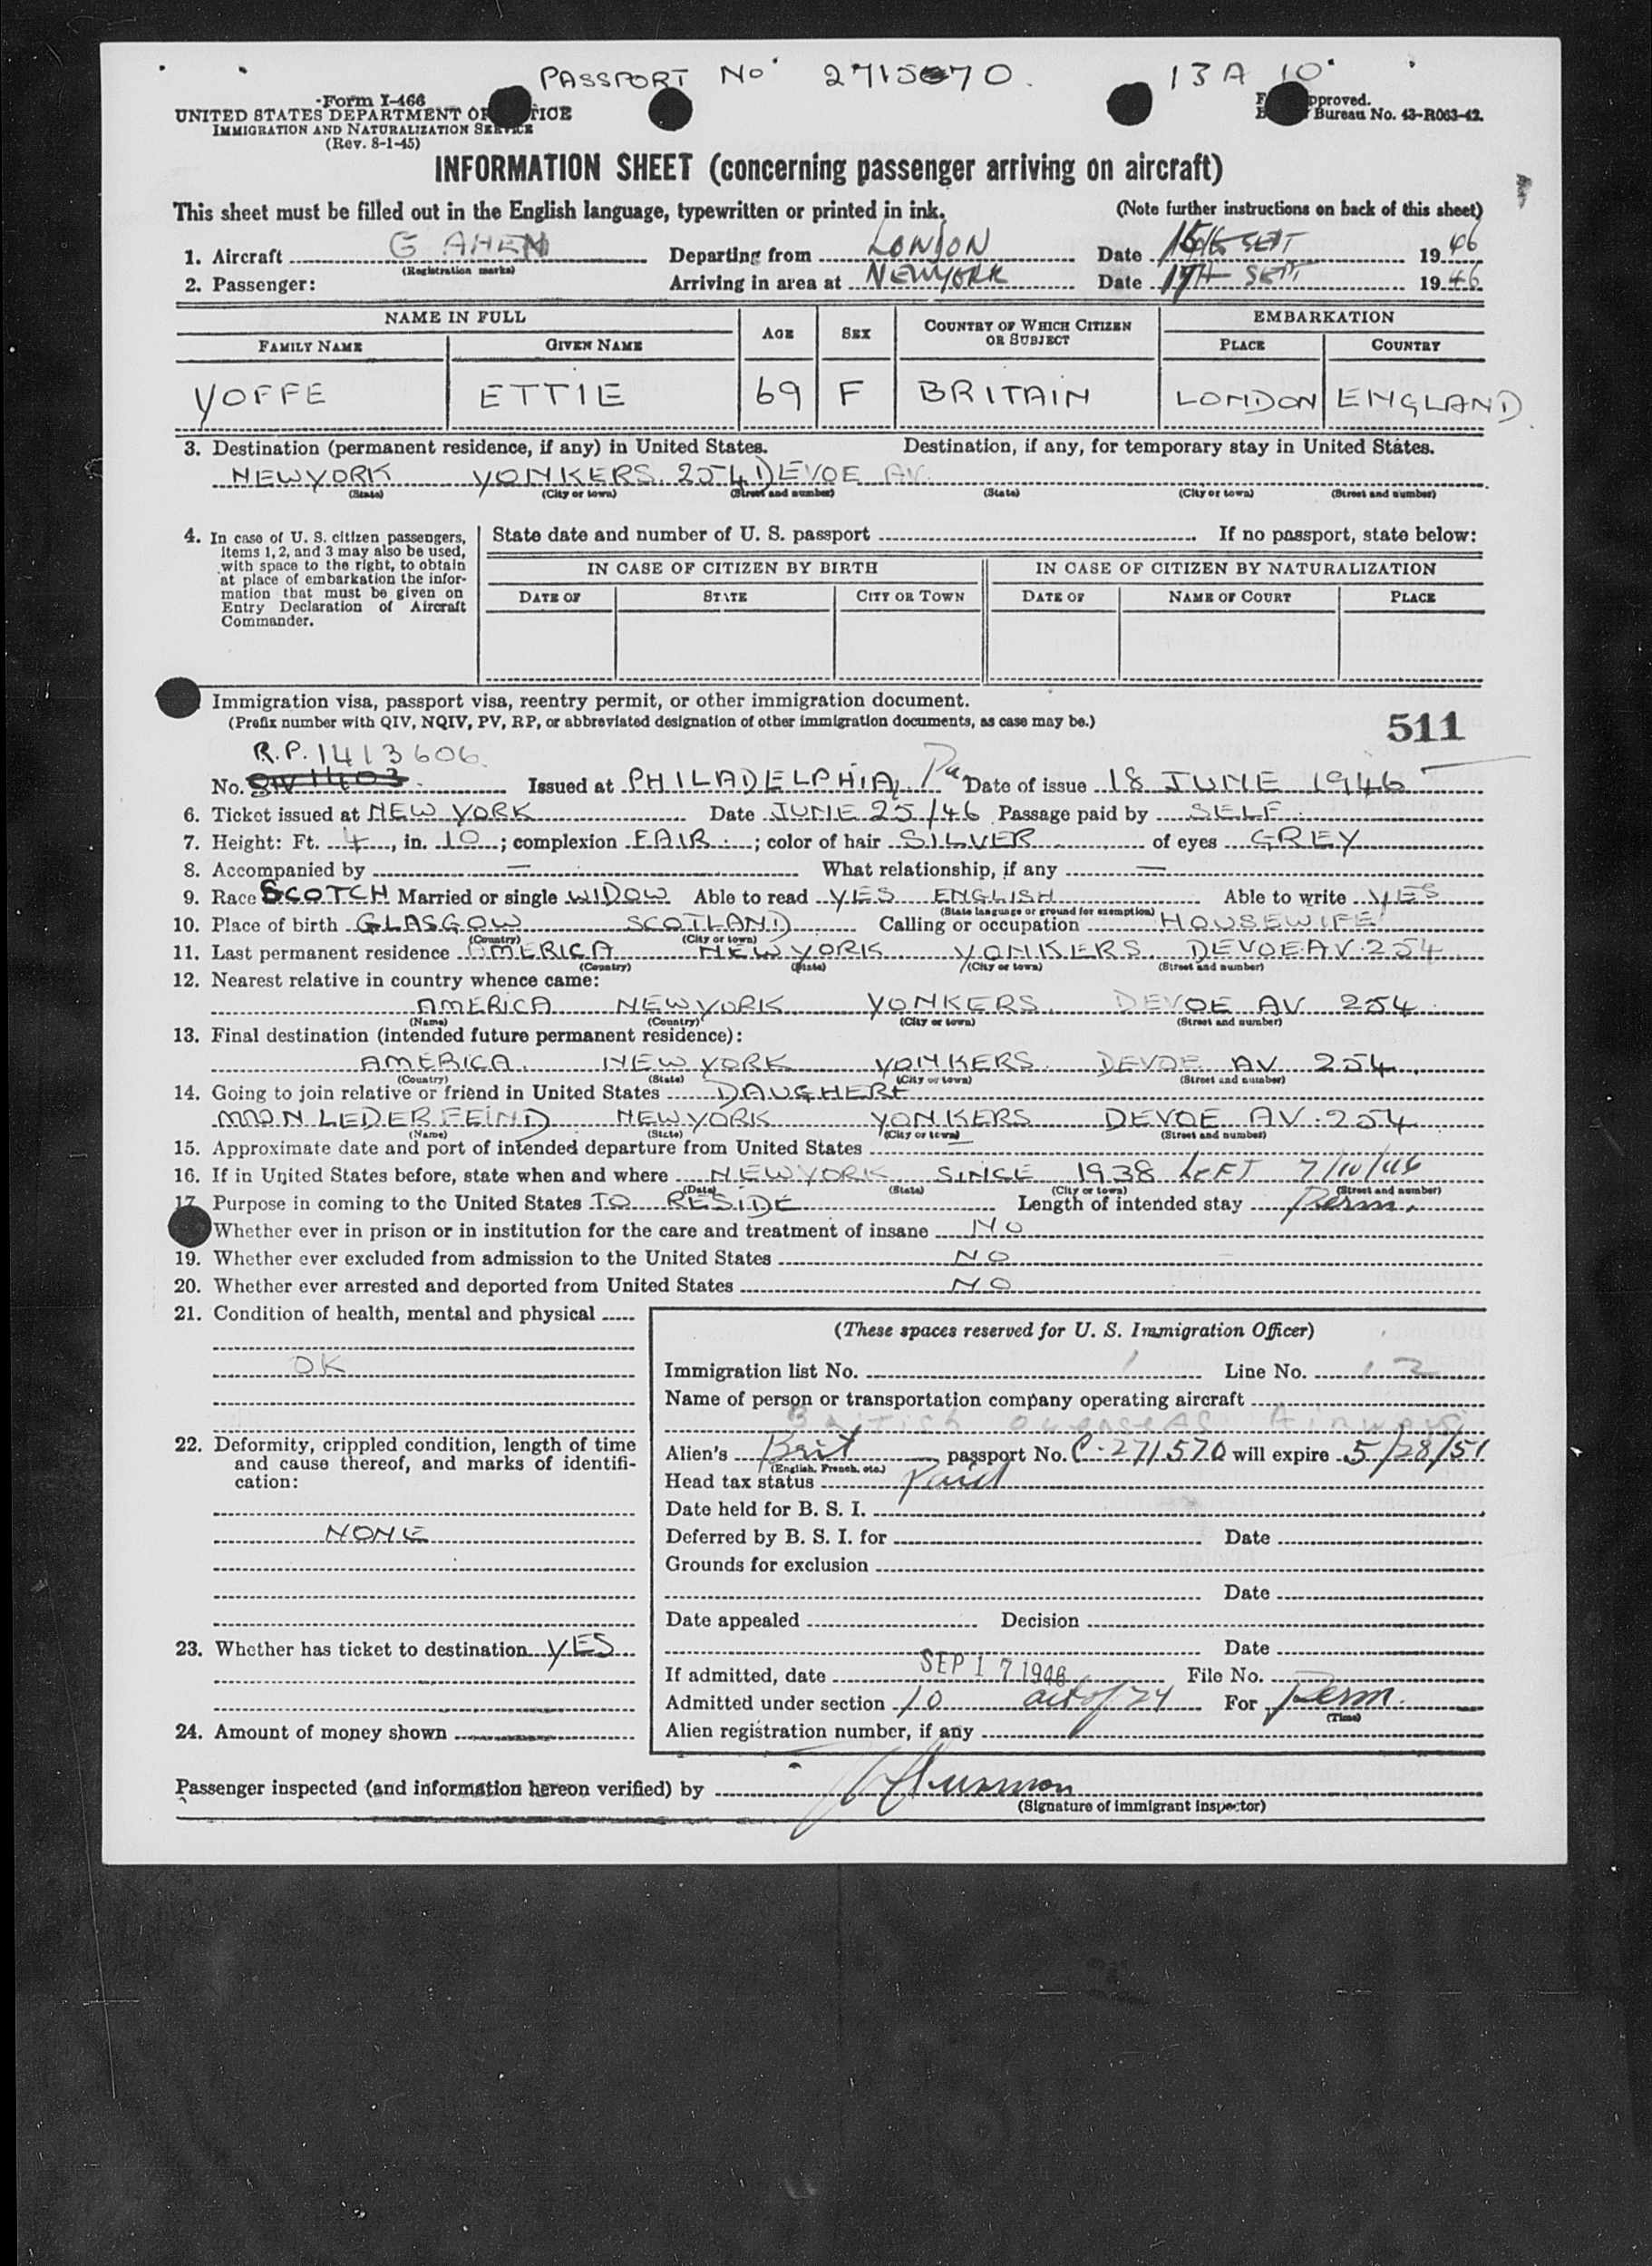 PASSPORT No 2715070. 13A 10
Form I-466
UNITED STATES DEPARTMENT OF TICE
IMMIGRATION AND NATURALIZATION SERVICE
(Rev. 8-1-45)
pproved.
Bureau No. 43-R063-42.
INFORMATION SHEET (concerning passenger arriving on aircraft)
This sheet must be filled out in the English language, typewritten or printed in ink. (Note further instructions on back of this sheet)
1. Aircraft G AHEN Departing from LONDON Date SEPT 1946
(Registration marks)
2. Passenger: Arriving in area at NEWYORK Date 17TH SEPT 1946
NAME IN FULL AGE SEX COUNTRY OF WHICH CITIZEN OR SUBJECT EMBARKATION
FAMILY NAME GIVEN NAME PLACE COUNTRY
YOFFE ETTIE 69 F BRITAIN LONDON ENGLAND
3. Destination (permanent residence, if any) in United States. Destination, if any, for temporary stay in United States.
NEWYORK YONKERS. 254 DEVOE AV.
(State) (City or town) (Street and number) (State) (City or town) (Street and number)
4. In case of U. S. citizen passengers, items 1, 2, and 3 may also be used, with space to the right, to obtain at place of embarkation the information that must be given on Entry Declaration of Aircraft Commander.
State date and number of U. S. passport If no passport, state below:
IN CASE OF CITIZEN BY BIRTH IN CASE OF CITIZEN BY NATURALIZATION
DATE OF STATE CITY OR TOWN DATE OF NAME OF COURT PLACE
Immigration visa, passport visa, reentry permit, or other immigration document.
(Prefix number with QIV, NQIV, PV, RP, or abbreviated designation of other immigration documents, as case may be.)
511
R.P. 1413606.
No. Issued at PHILADELPHIA, Pa Date of issue 18 JUNE 1946
6. Ticket issued at NEW YORK Date JUNE 25/46 Passage paid by SELF
7. Height: Ft. 4, in. 10; complexion FAIR; color of hair SILVER of eyes GREY
8. Accompanied by — What relationship, if any —
9. Race SCOTCH Married or single WIDOW Able to read YES ENGLISH Able to write YES
(State language or ground for exemption)
10. Place of birth GLASGOW SCOTLAND Calling or occupation HOUSEWIFE
(Country) (City or town)
11. Last permanent residence AMERICA NEW YORK YONKERS DEVOE AV. 254
(Country) (State) (City or town) (Street and number)
12. Nearest relative in country whence came:
AMERICA NEWYORK YONKERS. DEVOE AV 254
(Name) (Country) (City or town) (Street and number)
13. Final destination (intended future permanent residence):
AMERICA. NEW YORK YONKERS. DEVOE AV 254
(Country) (State) (City or town) (Street and number)
14. Going to join relative or friend in United States DAUGHERE
LEDERFEIND NEWYORK YONKERS DEVOE AV. 254
(Name) (State) (City or town) (Street and number)
15. Approximate date and port of intended departure from United States —
16. If in United States before, state when and where NEWYORK SINCE 1938 LEFT 7/10/46
(Date) (State) (City or town) (Street and number)
17. Purpose in coming to the United States TO RESIDE Length of intended stay Perm.
Whether ever in prison or in institution for the care and treatment of insane NO
19. Whether ever excluded from admission to the United States NO
20. Whether ever arrested and deported from United States NO
21. Condition of health, mental and physical
OK
22. Deformity, crippled condition, length of time and cause thereof, and marks of identification:
NONE
23. Whether has ticket to destination YES
24. Amount of money shown
(These spaces reserved for U. S. Immigration Officer)
Immigration list No. 1 Line No. 12
Name of person or transportation company operating aircraft
British Overseas Airways
Alien's Brit passport No. C-271570 will expire 5/28/51
(English, French, etc.)
Head tax status Paid
Date held for B. S. I.
Deferred by B. S. I. for Date
Grounds for exclusion
Date
Date appealed Decision
Date
If admitted, date SEP 17 1946 File No.
Admitted under section 10 act of 24 For Perm.
(Time)
Alien registration number, if any
Passenger inspected (and information hereon verified) by
(Signature of immigrant inspector)